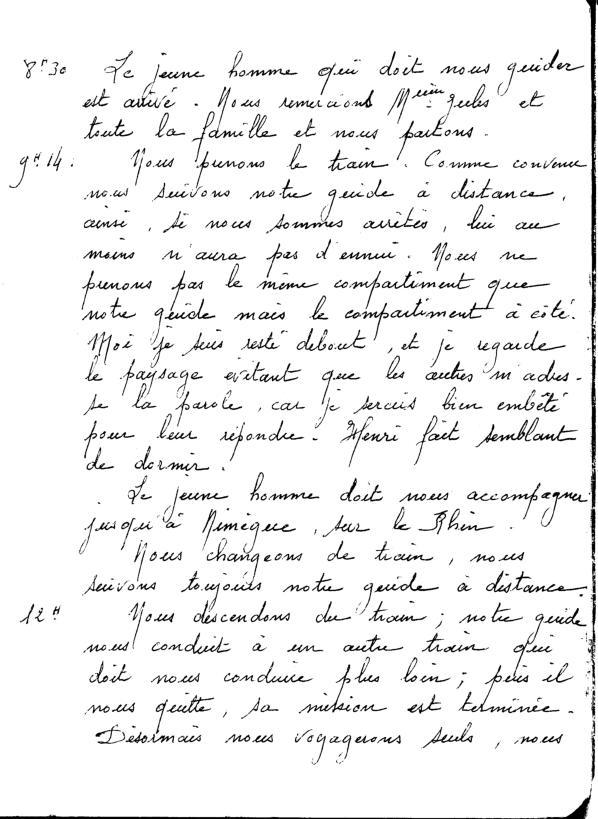 8ʰ30 Le jeune homme qui doit nous guider
est arrivé. Nous remercions Mᵐᵉ Jules et
toute la famille et nous partons.
9ʰ14. Nous prenons le train. Comme convenu
nous suivons notre guide à distance,
ainsi, si nous sommes arrêtés, lui au
moins n'aura pas d'ennui. Nous ne
prenons pas le même compartiment que
notre guide mais le compartiment à côté.
Moi je suis resté debout, et je regarde
le paysage évitant que les autres m'adres-
se la parole, car je serais bien embêté
pour leur répondre. Henri fait semblant
de dormir.
Le jeune homme doit nous accompagner
jusqu'à Nimègue, sur le Rhin.
Nous changeons de train, nous
suivons toujours notre guide à distance.
12ᴴ Nous descendons du train; notre guide
nous conduit à un autre train qui
doit nous conduire plus loin; puis il
nous quitte, sa mission est terminée.
Désormais nous voyagerons seuls, nous